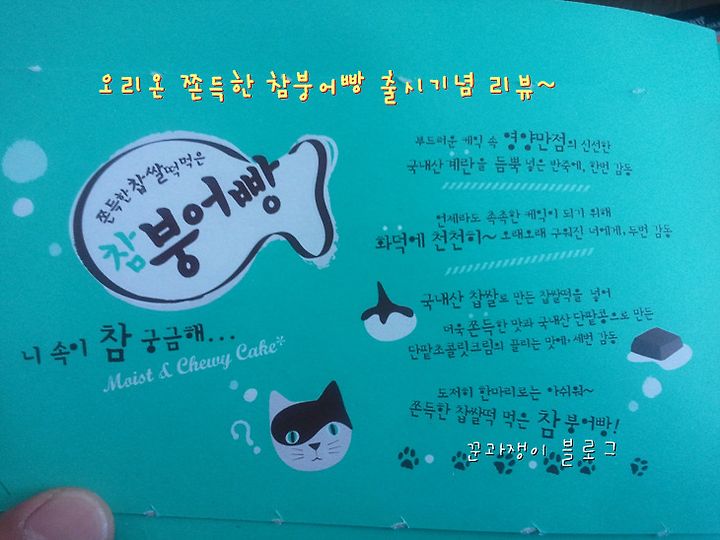 오리온 쫀득한 참붕어빵 출시기념 리뷰~
쫀득한 찹쌀떡먹은
참붕어빵
니 속이 참 궁금해...
Moist & Chewy Cake*
?
부드러운 케익 속 영양만점의 신선한
국내산 계란을 듬뿍 넣은 반죽에, 한번 감동
언제라도 촉촉한 케익이 되기 위해
화덕에 천천히~ 오래오래 구워진 너에게, 두번 감동
국내산 찹쌀로 만든 찹쌀떡을 넣어
더욱 쫀득한 맛과 국내산 단팥콩으로 만든
단팥초콜릿크림의 끌리는 맛에, 세번 감동
도저히 한마리로는 아쉬워~
쫀득한 찹쌀떡 먹은 참붕어빵!
꾼과쟁이 블로그